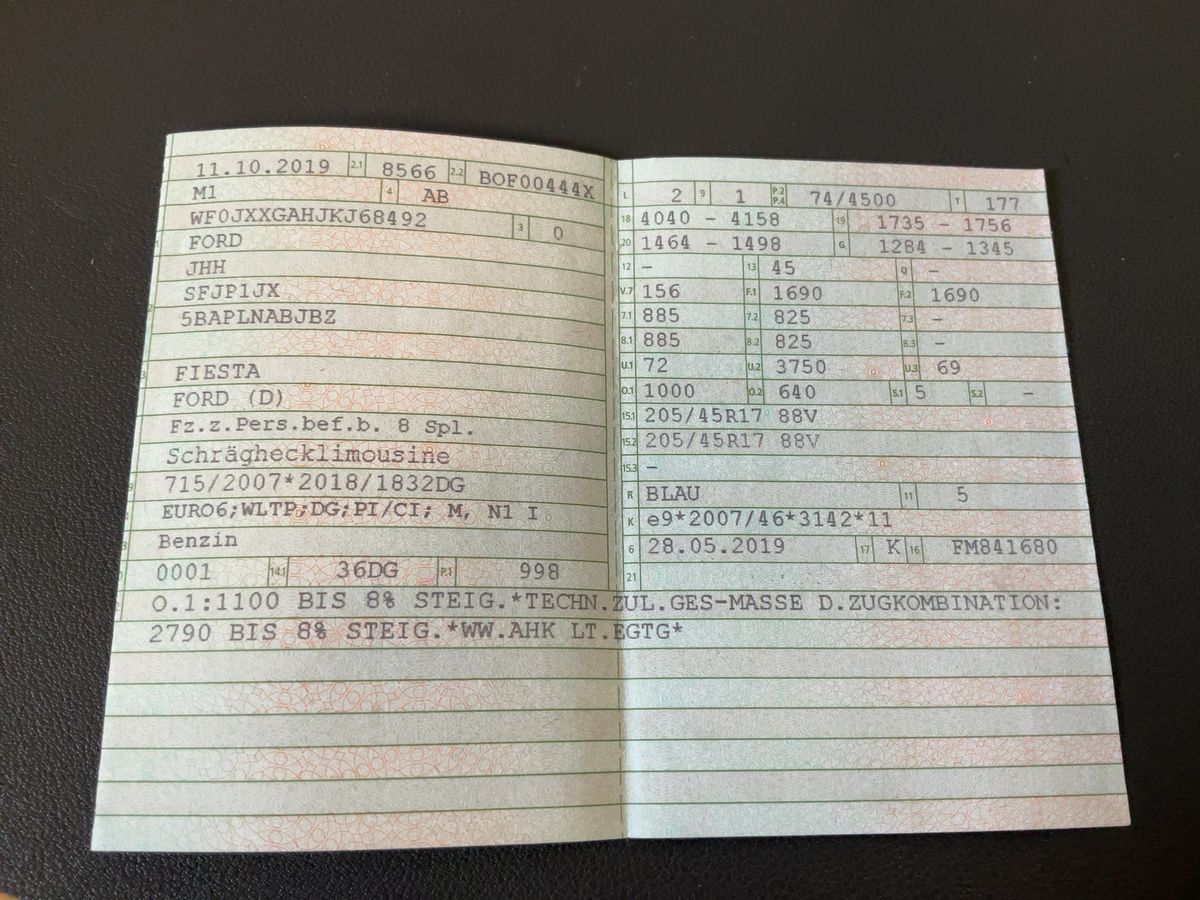 11.10.2019 2.1 8566 2.2 BOF00444X
M1 4 AB
WF0JXXGAHJKJ68492 3 0
FORD
JHH
SFJP1JX
5BAPLNABJBZ
FIESTA
FORD (D)
Fz.z.Pers.bef.b. 8 Spl.
Schräghecklimousine
715/2007*2018/1832DG
EURO6;WLTP;DG;PI/CI; M, N1 I
Benzin
0001 14.1 36DG P.1 998
L 2 9 1 P.2 P.4 74/4500 T 177
18 4040 - 4158 19 1735 - 1756
20 1464 - 1498 G 1284 - 1345
12 - 13 45 Q -
V.7 156 F.1 1690 F.2 1690
7.1 885 7.2 825 7.3 -
8.1 885 8.2 825 8.3 -
U.1 72 U.2 3750 U.3 69
O.1 1000 O.2 640 S.1 5 S.2 -
15.1 205/45R17 88V
15.2 205/45R17 88V
15.3 -
R BLAU 11 5
K e9*2007/46*3142*11
6 28.05.2019 17 K 16 FM841680
21
O.1:1100 BIS 8% STEIG.*TECHN.ZUL.GES-MASSE D.ZUGKOMBINATION:
2790 BIS 8% STEIG.*WW.AHK LT.EGTG*